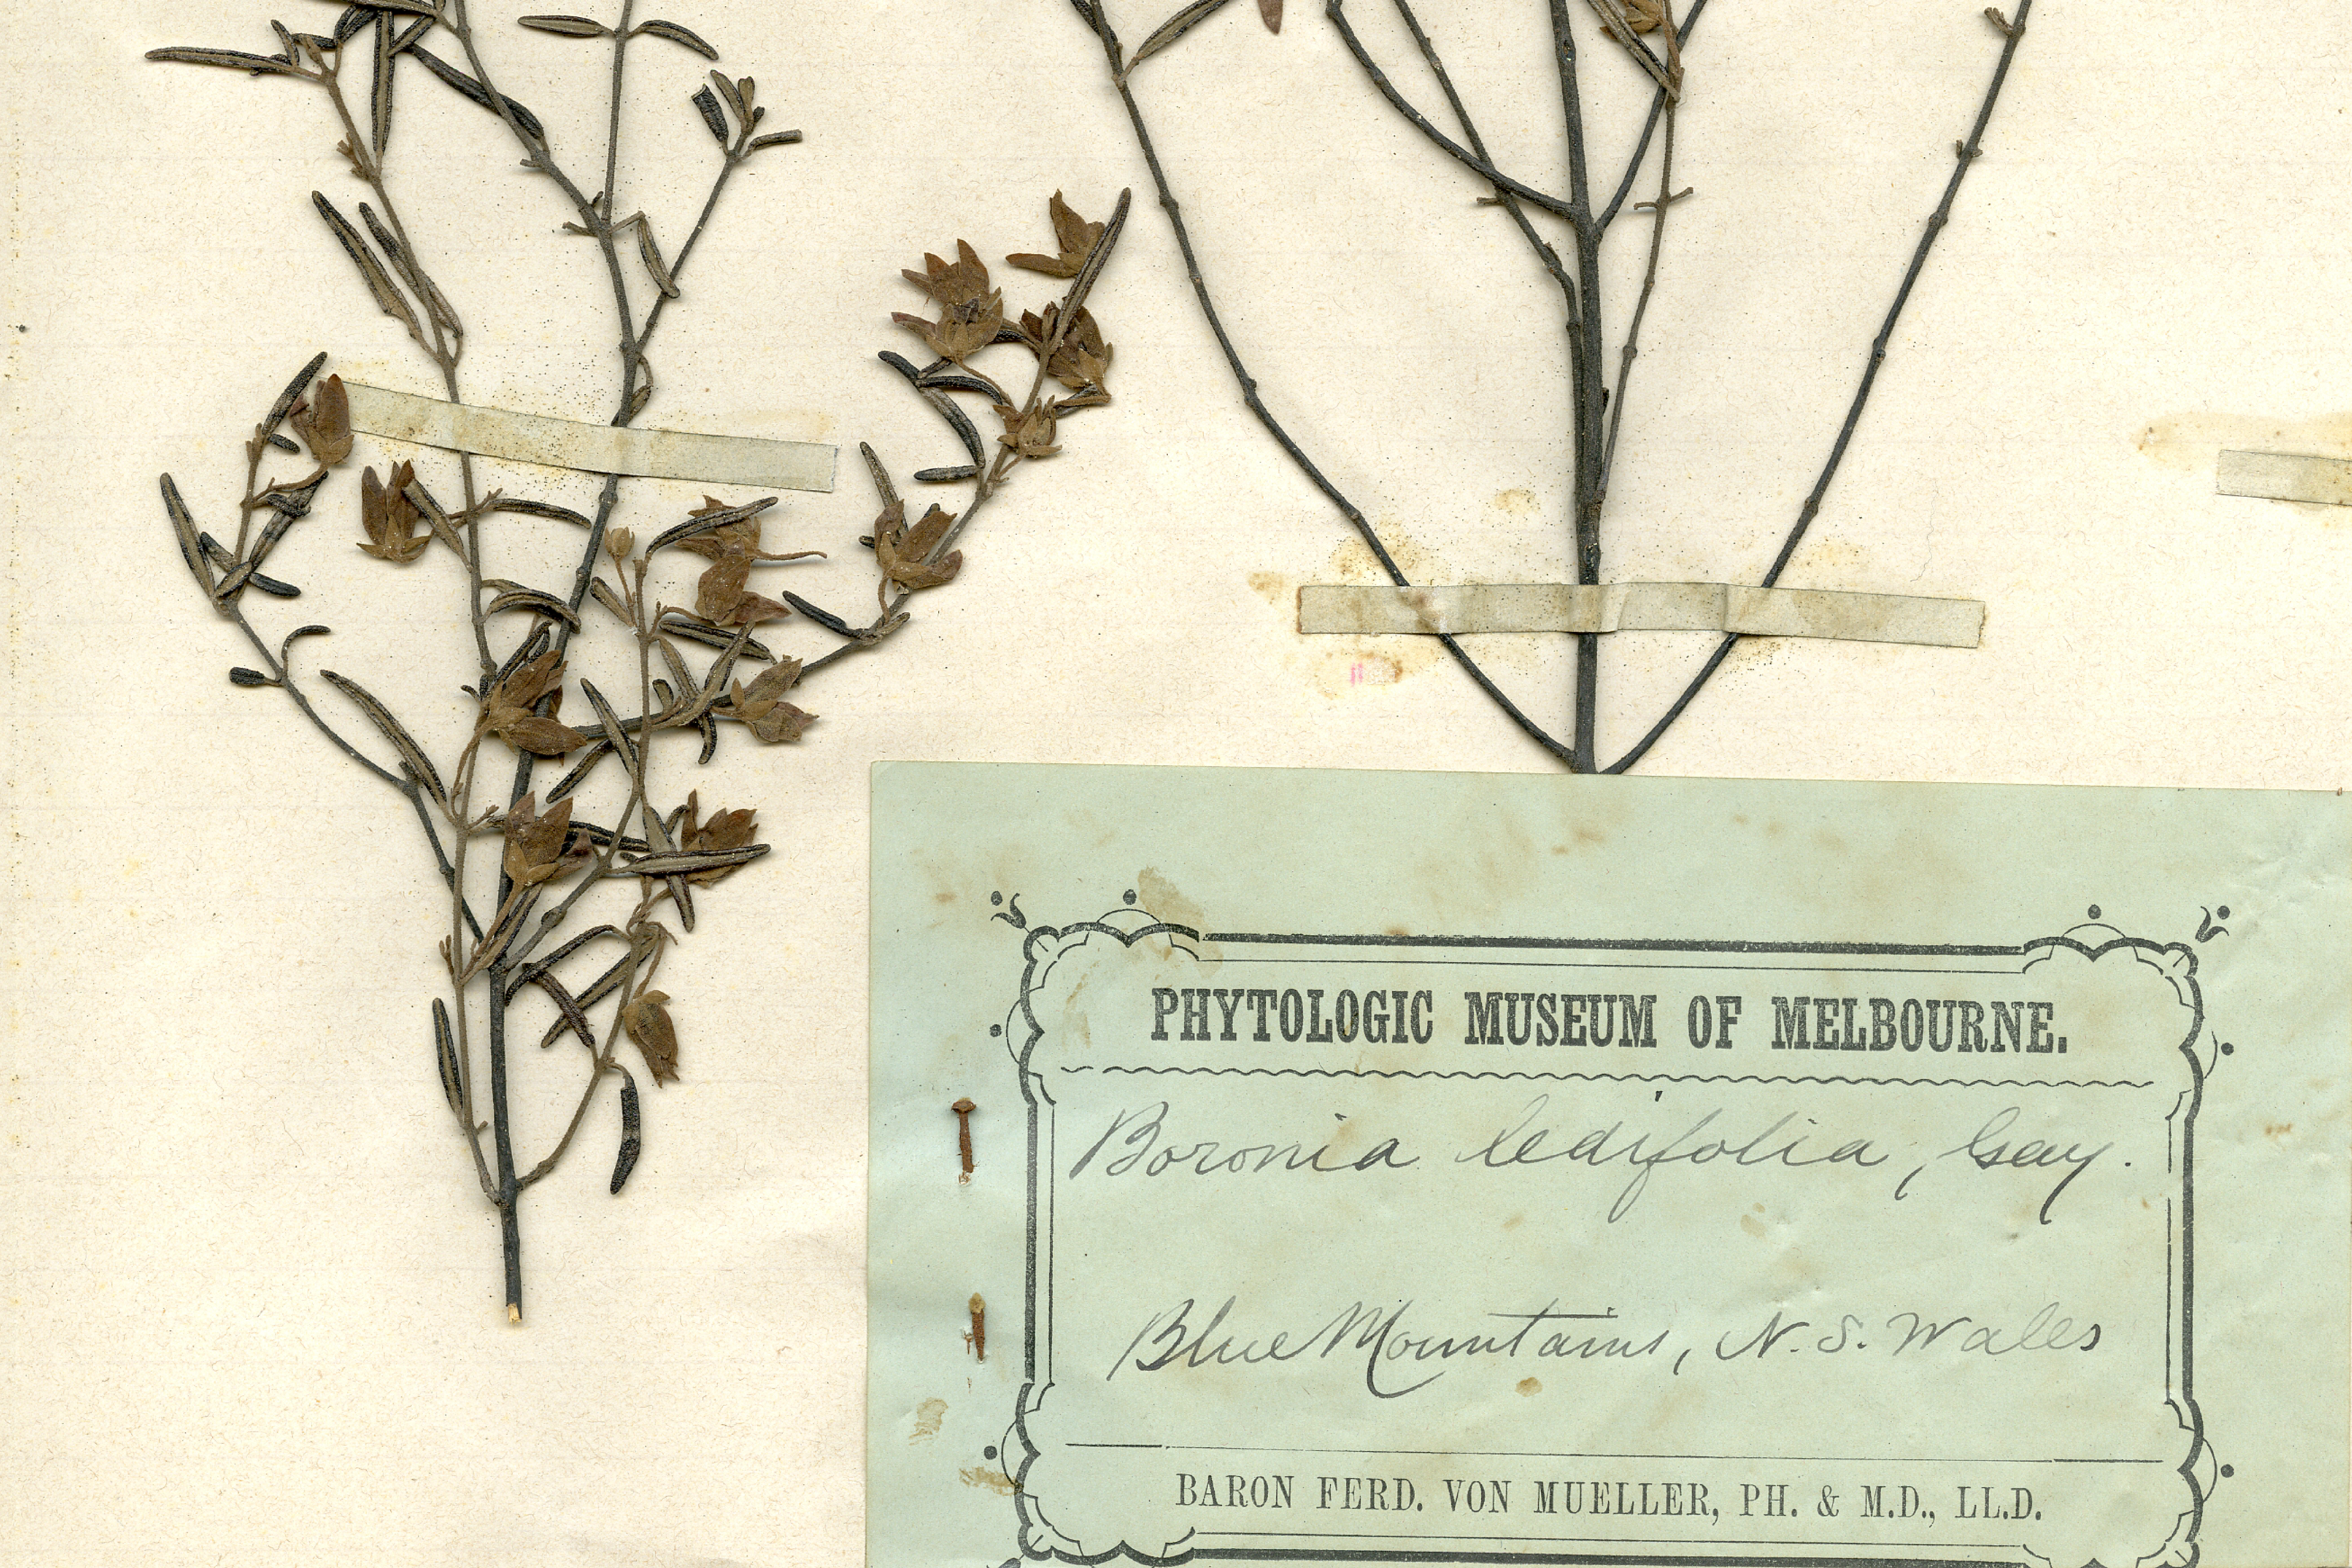 PHYTOLOGIC MUSEUM OF MELBOURNE.
Boronia ledifolia, Gay.
Blue Mountains, N. S. Wales
BARON FERD. VON MUELLER, PH. & M.D., LL.D.